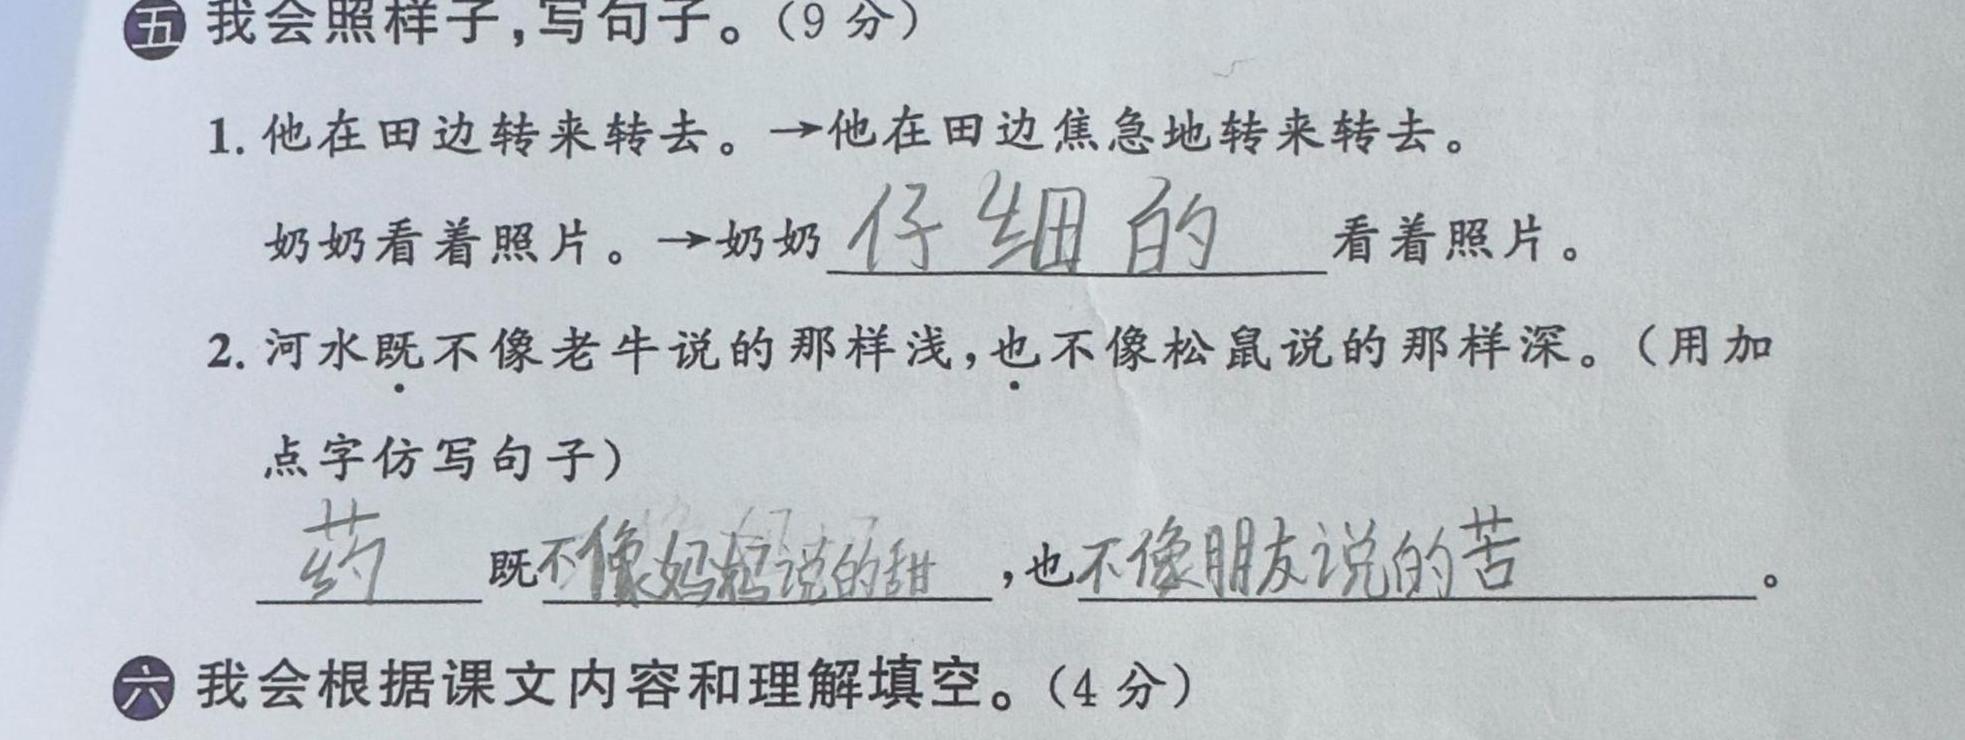 五 我会照样子,写句子。(9 分)
1. 他在田边转来转去。→他在田边焦急地转来转去。
奶奶看着照片。→奶奶仔细的看着照片。
2. 河水既不像老牛说的那样浅,也不像松鼠说的那样深。(用加
点字仿写句子)
药既不像妈妈说的甜,也不像朋友说的苦。
六 我会根据课文内容和理解填空。(4 分)